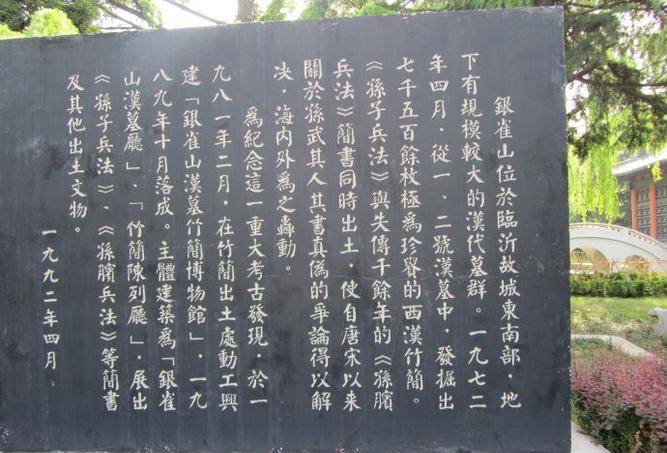 銀雀山位於臨沂故城東南部，地
下有規模較大的漢代墓群。一九七二
年四月，從一、二號漢墓中，發掘出
七千五百餘枚極為珍貴的西漢竹簡。
《孫子兵法》與失傳千餘年的《孫臏
兵法》簡書同時出土，使自唐宋以來
關於孫武其人其書真偽的爭論得以解
决，海内外為之轟動。
為紀念這一重大考古發現，於一
九八一年二月，在竹簡出土處動工興
建「銀雀山漢墓竹簡博物館」，一九
八九年十月落成。主體建築為「銀雀
山漢墓廳」、「竹簡陳列廳」，展出
《孫子兵法》、《孫臏兵法》等簡書
及其他出土文物。
一九九二年四月